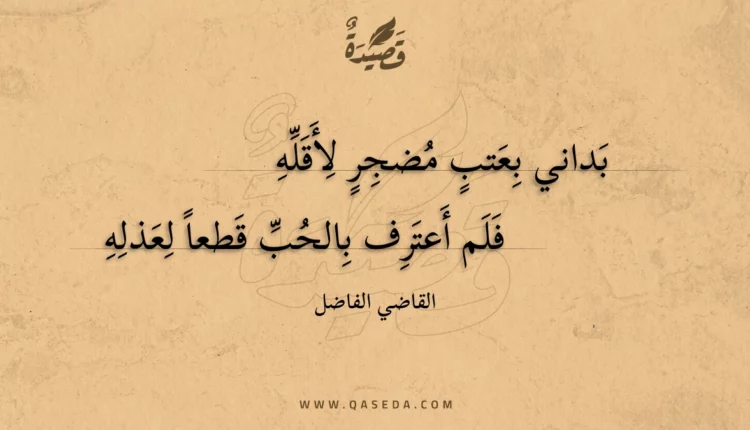 قَصِيْدَةٌ
بَداني بِعَتبٍ مُضجِرٍ لِأَقَلِّهِ
فَلَم أَعتَرِف بِالحُبِّ قَطعاً لِعَذلِهِ
القاضي الفاضل
WWW.QASEDA.COM